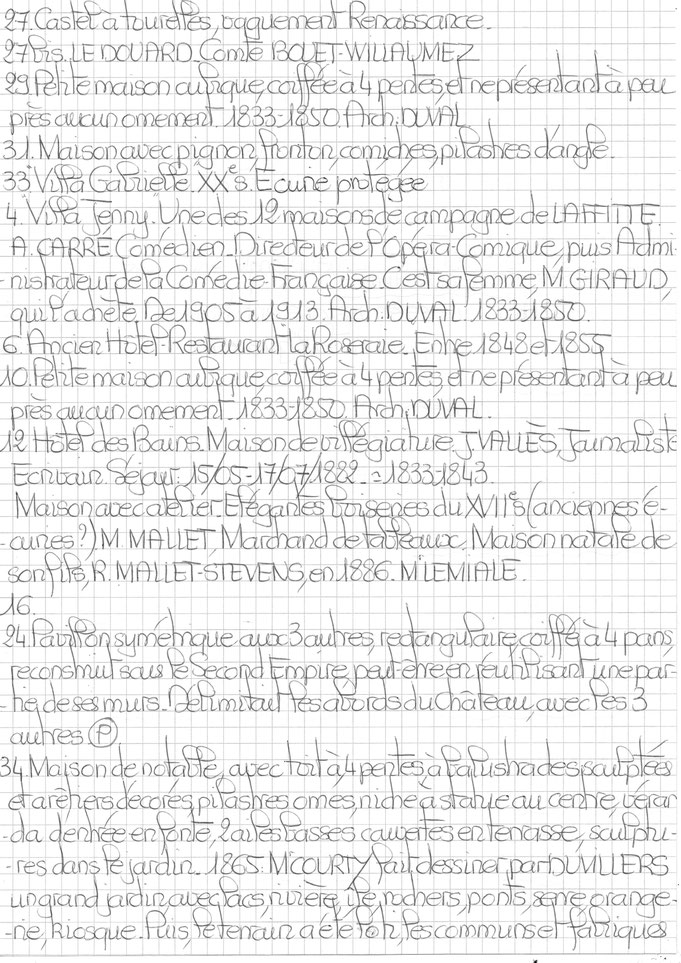 27. Castel à tourelles, vaguement Renaissance.
27 bis. LE DOUARD. Comte BOUET-WILLAUMEZ
29. Petite maison cubique, coiffée à 4 pentes, et ne présentant à peu
près aucun ornement. 1833-1850. Arch. DUVAL
31. Maison avec pignon, fronton, corniches, pilastres d'angle.
33 "Villa Gabrielle". XXe s. Écurie protégée
4. "Villa Jenny". Une des 12 maisons de campagne de LAFFITTE.
A. CARRÉ Comédien. Directeur de l'Opéra-Comique, puis Admi-
-nistrateur de la Comédie-Française. C'est sa femme, M GIRAUD,
qui l'achète. De 1905 à 1913. Arch. DUVAL. 1833-1850.
6. Ancien Hôtel-Restaurant "la Roseraie". Entre 1848 et 1855
10. Petite maison cubique, coiffée à 4 pentes, et ne présentant à peu
près aucun ornement. 1833-1850. Arch. DUVAL.
12. Hôtel des Bains. Maison de villégiature J VALLÈS, Journaliste
Écrivain. Séjour: 15/05-17/07/1882. = 1833-1843.
Maison avec atelier. Élégantes boiseries du XVIIe s (anciennes é-
-curies?) M. MALLET Marchand de tableaux. Maison natale de
son fils, R. MALLET-STEVENS, en 1886. Mr LEMIALE.
16.
24. Pavillon symétrique aux 3 autres, rectangulaire, coiffé à 4 pans,
reconstruit sous le Second Empire, peut-être en réutilisant une par-
-tie de ses murs. Délimitait les abords du Château, avec les 3
autres (P)
34. Maison de notable, avec toit à 4 pentes, à balustrades sculptées
et arêtiers décorés, pilastres ornés, niche à statue au centre, véran
-da d'entrée en fonte, 2 ailes basses couvertes en terrasse, sculptu-
-res dans le jardin. 1865: Mr COURTY fait dessiner par DUVILLERS
un grand jardin avec lacs, rivière, île, rochers, ponts, serre, orange-
-rie, kiosque. Puis, le terrain a été loti, les communs et fabriques